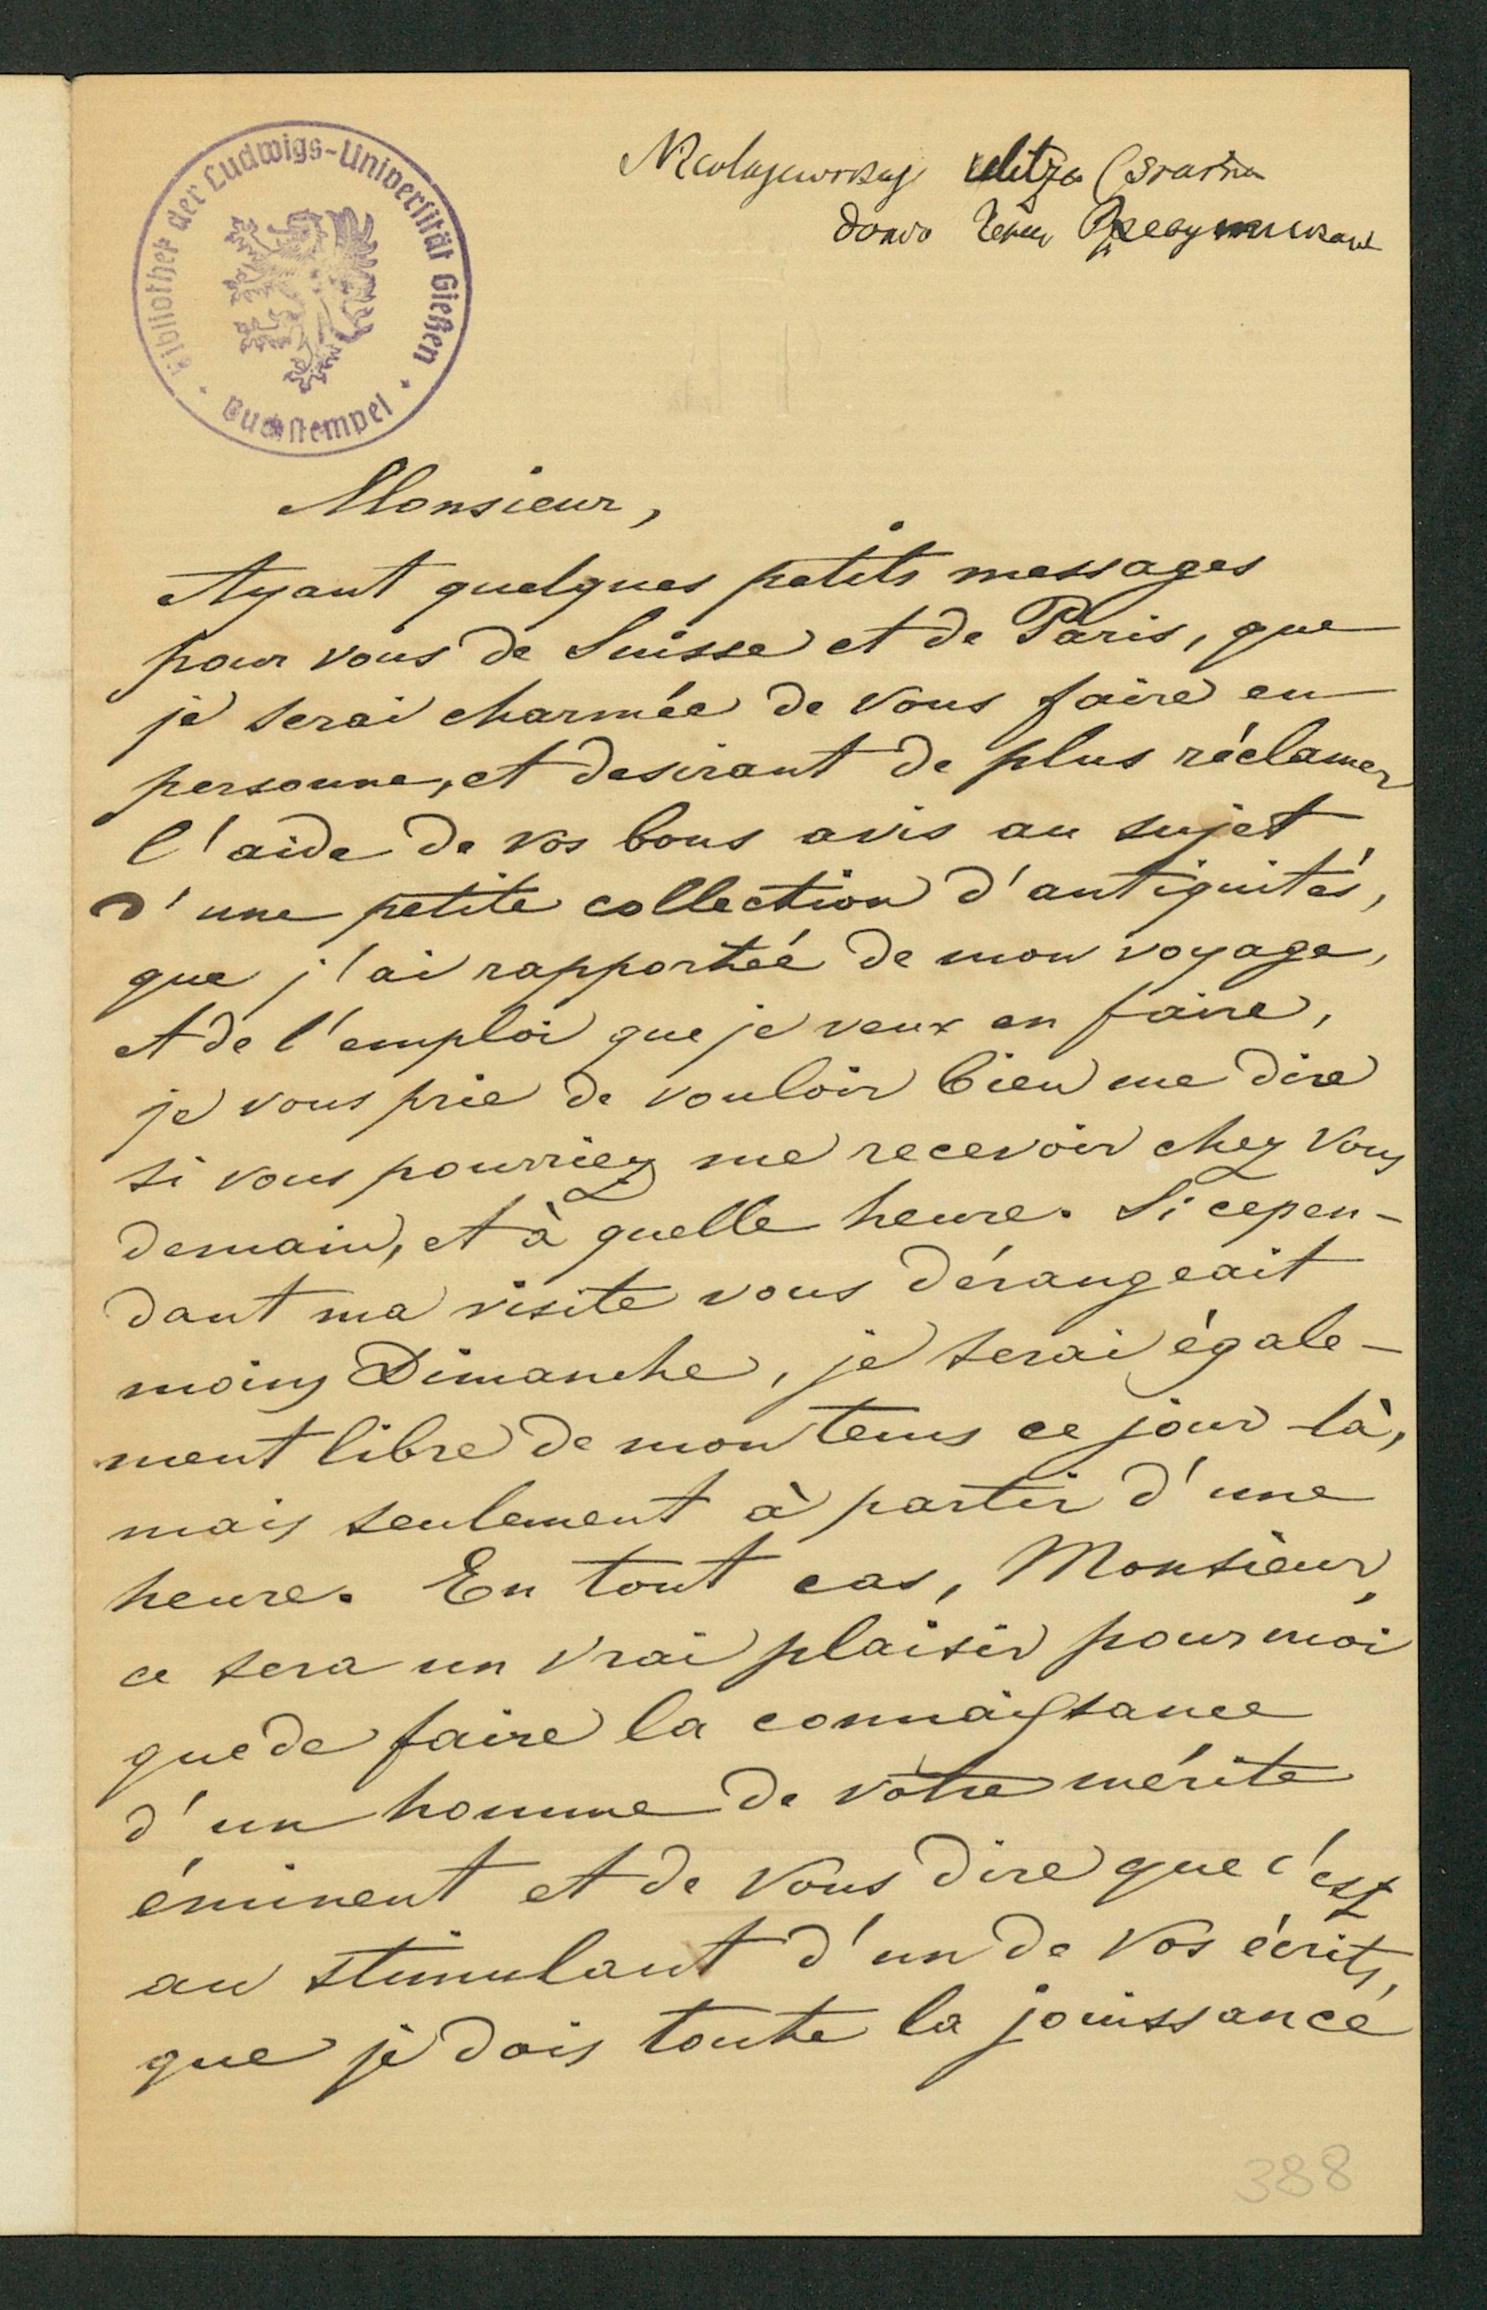 Bibliothek der Ludwigs-Universität Gießen
Buchstempel
ulitza
Monsieur,
Ayant quelques petits messages
pour vous de Suisse et de Paris, que
je serai charmée de vous faire en
personne, et desirant de plus réclamer
l'aide de vos bons avis au sujet
d'une petite collection d'antiquités,
que j'ai rapportée de mon voyage,
et de l'emploi que je veux en faire,
je vous prie de vouloir bien me dire
si vous pourriez me recevoir chez vous
demain, et à quelle heure. Si cepen-
dant ma visite vous dérangeait
moins Dimanche, je serai égale-
ment libre de mon tems ce jour-là,
mais seulement à partir d'une
heure. En tout cas, Monsieur,
ce sera un vrai plaisir pour moi
que de faire la connaissance
d'un homme de vôtre mérite
éminent et de vous dire que c'est
au stimulant d'un de vos écrits,
que je dois toute la jouissance
388